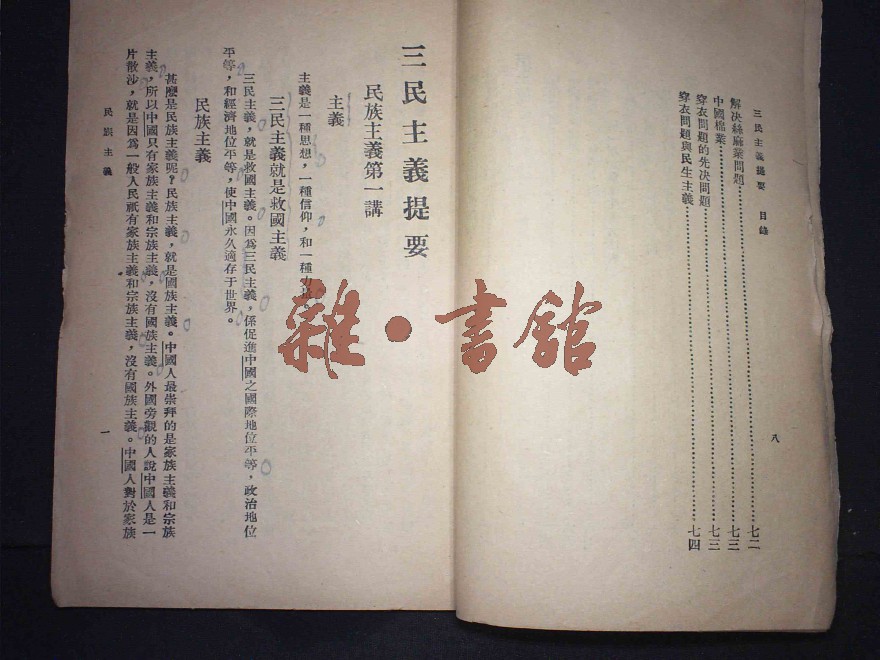 三民主義提要 目錄
解決絲麻業問題……………………七二
中國棉業……………………七三
穿衣問題的先決問題……………………七三
穿衣問題與民生主義……………………七四
八
三民主義提要
民族主義第一講
主義
主義是一種思想，一種信仰，和一種力量。
三民主義就是救國主義
三民主義，就是救國主義。因爲三民主義，係促進中國之國際地位平等，政治地位
平等，和經濟地位平等，使中國永久適存于世界。
民族主義
甚麽是民族主義呢？民族主義，就是國族主義。中國人最崇拜的是家族主義和宗族
主義，所以中國只有家族主義和宗族主義，沒有國族主義。外國旁觀的人說中國人是一
片散沙，就是因爲一般人民祇有家族主義和宗族主義，沒有國族主義。中國人對於家族
民族主義
一
雜·書館